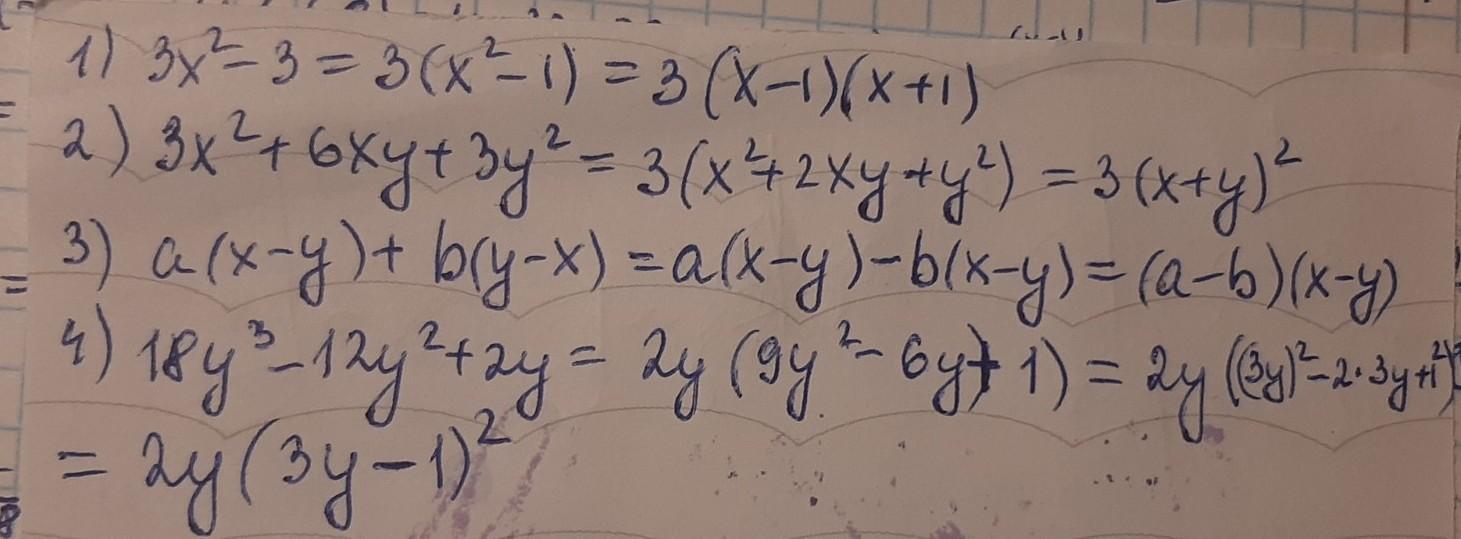 1) 3x² - 3 = 3(x² - 1) = 3(x-1)(x+1)
2) 3x² + 6xy + 3y² = 3(x² + 2xy + y²) = 3(x+y)²
3) a(x-y) + b(y-x) = a(x-y) - b(x-y) = (a-b)(x-y)
4) 18y³ - 12y² + 2y = 2y(9y² - 6y + 1) = 2y((3y)² - 2·3y + 1²)
= 2y(3y - 1)²